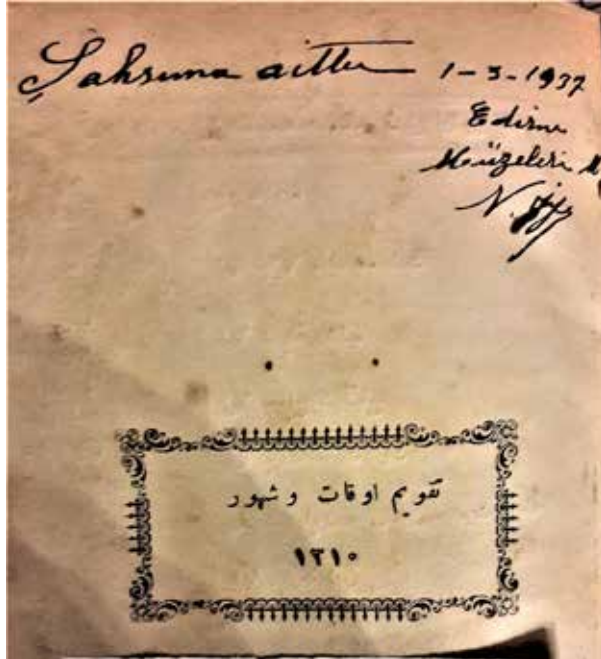 Şahsıma aittir 1-3-1937
Edirne
Müzeleri M
N.
تقويم اوقات و شهور
١٣١٠